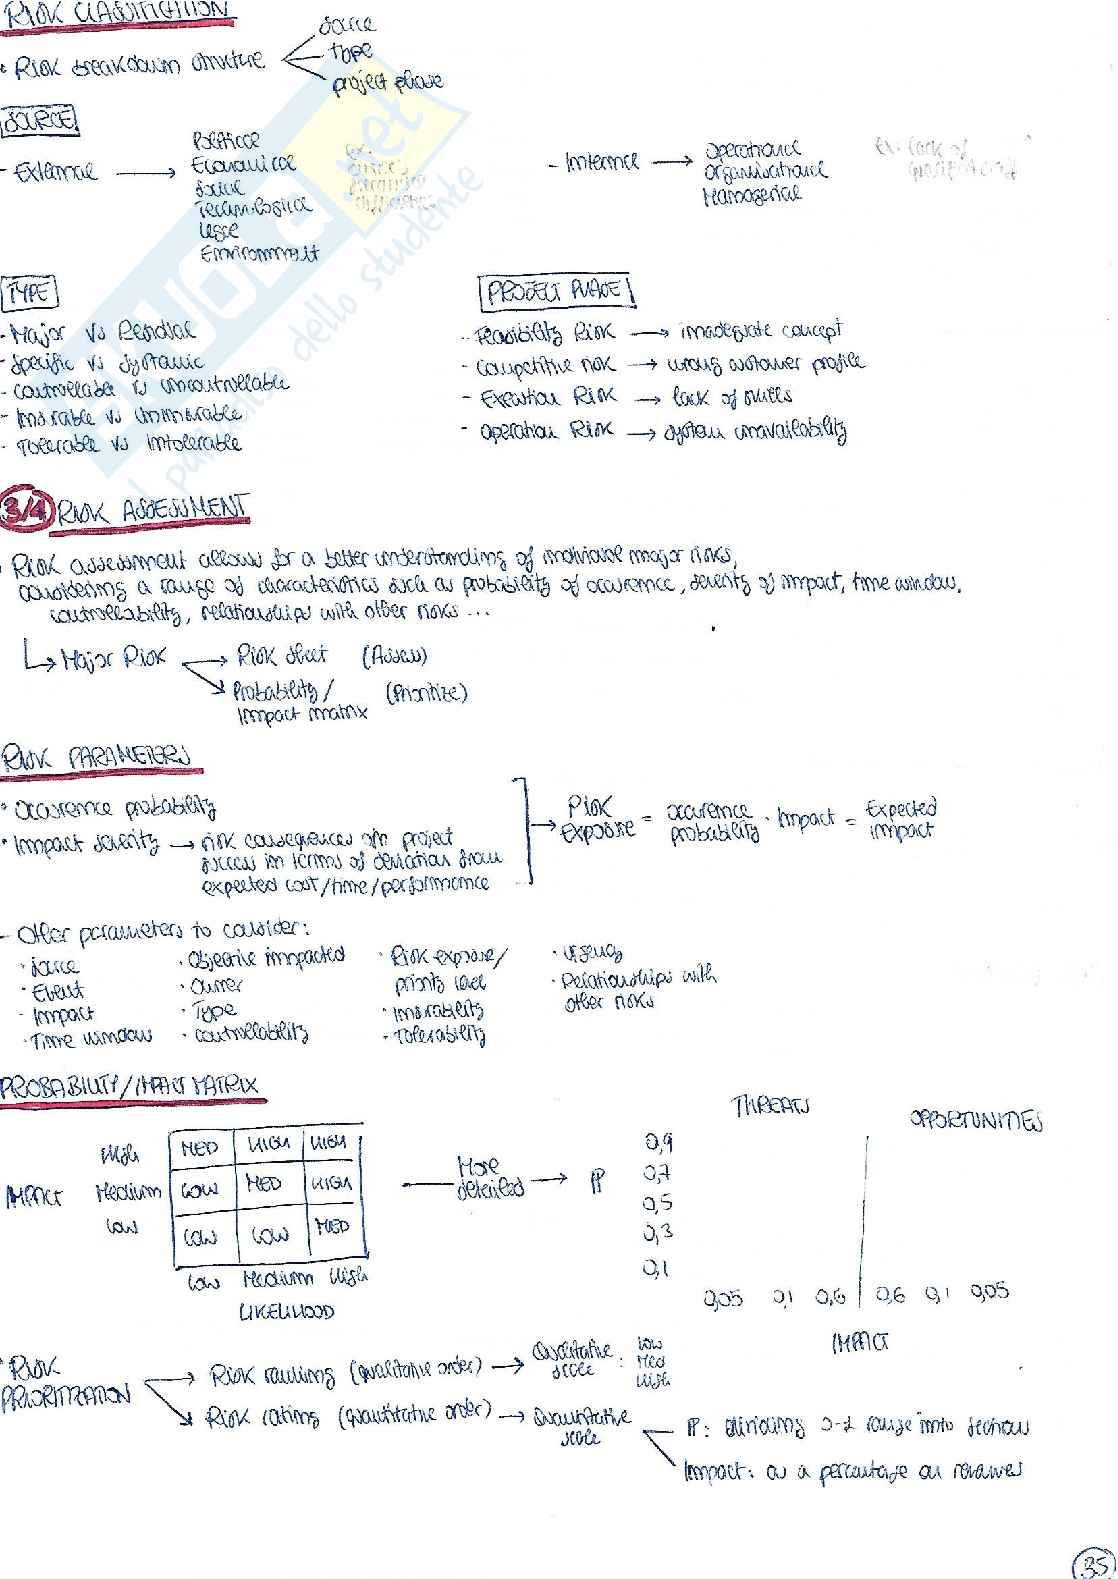 RISK CLASSIFICATION
• RISK breakdown structure
source
type
project phase
SOURCE
- External
Political
Economical
Social
Technological
Legal
Environment
ex:
- Internal
Operational
Organisational
Managerial
Ex: lack of
TYPE
- Major vs Residial
- Specific vs Systamic
- Controllable vs uncontrollable
- Insurable vs uninsurable
- Tolerable vs intolerable
PROJECT PHASE
- Feasibility RISK → inadequate concept
- Competitive risk → wrong customer profile
- Execution RISK → lack of skills
- Operation RISK → system unavailability
3/4 RISK ASSESSMENT
• RISK assessment allows for a better understanding of individual major risks,
considering a range of characteristics such as probability of occurence, severity of impact, time window,
controllability, relationships with other risks ...
Major RISK
→ RISK sheet (Assess)
Probability/ (Prioritize)
Impact matrix
RISK PARAMETERS
• Occurence probability
• Impact severity → risk consequences on project
success in terms of deviation from
expected cost/time/performance
RISK exposure = occurence probability · Impact = Expected impact
- Other parameters to consider:
· Source
· Event
· Impact
· Time window
· Objective impacted
· Owner
· Type
· controllability
· RISK exposure/
priority level
· Insurability
· Tolerability
· Urgency
· Relationships with
other risks
PROBABILITY/IMPACT MATRIX
IMPACT
High MED HIGH HIGH
Medium LOW MED HIGH
Low LOW LOW MED
Low Medium High
LIKELIHOOD
More
detailed
THREATS
OPPORTUNITIES
P
0,9
0,7
0,5
0,3
0,1
0,05 0,1 0,6 0,6 0,1 0,05
IMPACT
• RISK
PRIORITIZATION
→ RISK ranking (qualitative order) → Qualitative scale :
low
Med
High
RISK rating (quantitative order) → Quantitative scale
P: dividing 0-1 range into sections
Impact: as a percentage on revenues
35
il paradiso dello studente